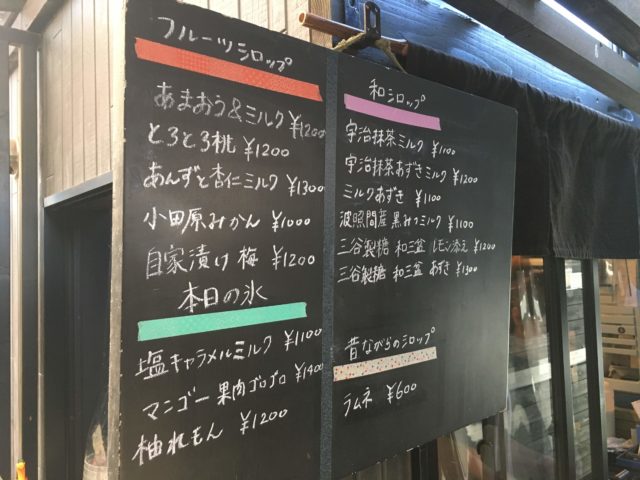 フルーツシロップ
あまおう&ミルク ¥1200
とろとろ桃 ¥1200
あんずと杏仁ミルク ¥1300
小田原みかん ¥1000
自家漬け 梅 ¥1200
本日の氷
塩キャラメルミルク ¥1100
マンゴー果肉ゴロゴロ ¥1400
柚れもん ¥1200
和シロップ
宇治抹茶ミルク ¥1100
宇治抹茶あずきミルク ¥1200
ミルクあずき ¥1100
波照間産 黒みつミルク ¥1100
三谷製糖 和三盆 レモン添え ¥1200
三谷製糖 和三盆 あずき ¥1300
昔ながらのシロップ
ラムネ ¥600